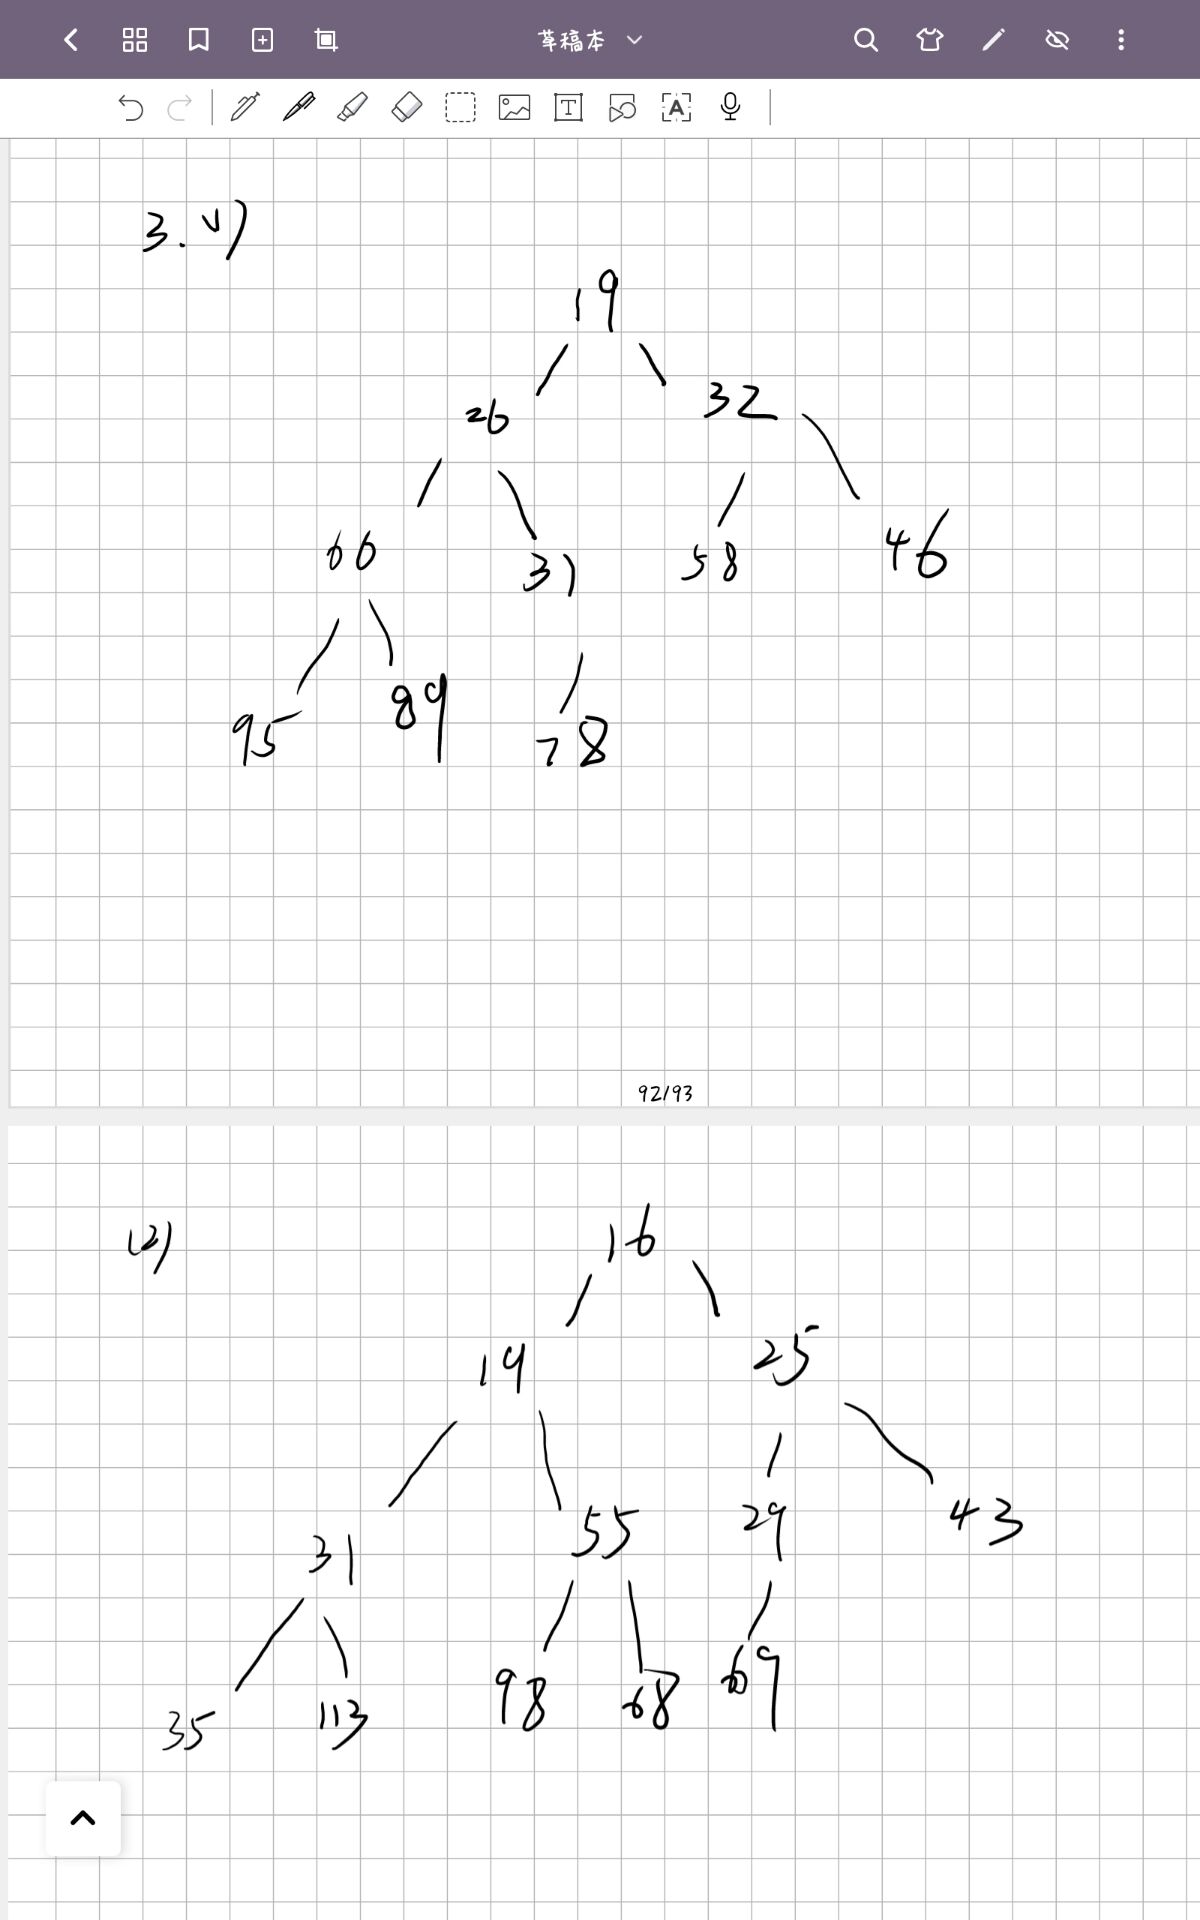 草稿本
T
A
3. (1)
19
26 32
66 31 58 46
95 89 78
92/93
(2)
16
19 25
31 55 29 43
35 113 98 68 69